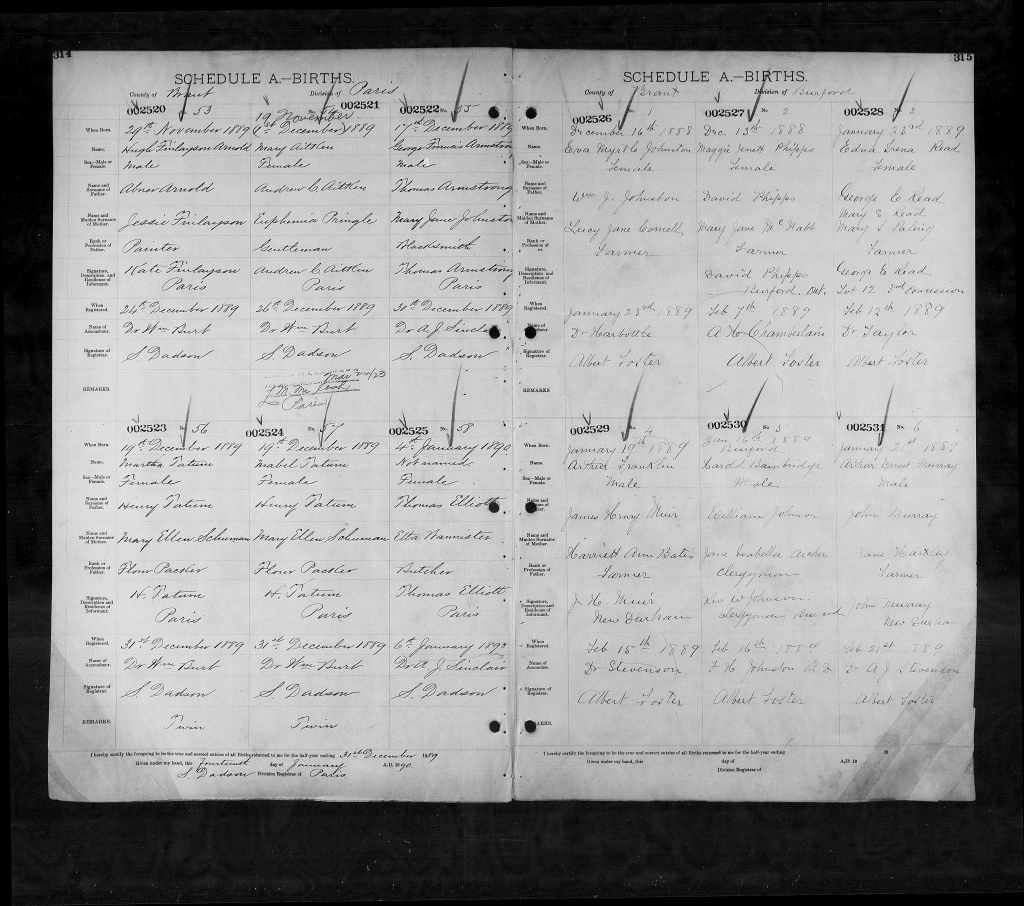 314
SCHEDULE A.—BIRTHS.
County of Brant Division of Paris
002520 53 002521 002522 No. 55
19 November
When Born. 29th November 1889 December 1889 17th December 1889
Name. Hugh Finlayson Arnold Mary Aitken George Francis Armstrong
Sex—Male or Female. Male Female Male
Name and Surname of Father. Abner Arnold Andrew C. Aitken Thomas Armstrong
Name and Maiden Surname of Mother. Jessie Finlayson Euphemia Pringle Mary Jane Johnston
Rank or Profession of Father. Painter Gentleman Blacksmith
Signature, Description, and Residence of Informant. Kate Finlayson Andrew C Aitken Thomas Armstrong
Paris Paris Paris
When Registered. 24th December 1889 26th December 1889 30th December 1889
Name of Accoucheur. Dr Wm Burt Dr Wm Burt Dr A. J. Sinclair
Signature of Registrar. S. Dadson S. Dadson S. Dadson
REMARKS.
Paris
002523 No. 56 002524 57 002525 No. 58
When Born. 19th December 1889 19th December 1889 4th January 1890
Name. Martha Tatum Mabel Tatum Not named
Sex—Male or Female. Female Female Female
Name and Surname of Father. Henry Tatum Henry Tatum Thomas Elliott
Name and Maiden Surname of Mother. Mary Ellen Schuman Mary Ellen Schuman Etta Wannister
Rank or Profession of Father. Flour Packer Flour Packer Butcher
Signature, Description and Residence of Informant. H. Tatum H. Tatum Thomas Elliott
Paris Paris Paris
When Registered. 31st December 1889 31st December 1889 6th January
Name of Accoucheur. Dr Wm Burt Dr Wm Burt Dr A. J. Sinclair
Signature of Registrar. S. Dadson S. Dadson S. Dadson
REMARKS. Twin Twin
I hereby certify the foregoing to be the true and correct entries of all Births returned to me for the half-year ending 31st December 1889
Given under my hand, this Fourteenth day of January A.D. 1890.
S. Dadson Division Registrar of Paris
315
SCHEDULE A.—BIRTHS.
County of Brant Division of Burford
002526 1 002527 No. 2 002528 No. 3
When Born. December 16th 1888 Dec. 13th 1888 January 23rd 1889
Name. Johnston Maggie Jenett Phipps Edna Irena Read
Sex—Male or Female. Female Female Female
Name and Surname of Father. Wm J. Johnston David Phipps George E Read
Mary E Read
Name and Maiden Surname of Mother. Lucy Jane Cornell Mary Jane McNabb Mary
Rank or Profession of Farmer Farmer Farmer
Signature, Description, and Residence of Informant. David Phipps George E Read
Burford, Ont. Lot 12 3rd concession
When Registered. January 23rd 1889 Feb 7th 1889 Feb 12th 1889
Name of Accoucheur. Dr Harbottle A. H. Chamberlain Dr Taylor
Signature of Registrar. Albert Foster Albert Foster Albert Foster
REMARKS.
002529 No. 4 002530 No. 5 002531 No. 6
When Born. January 19th 1889 Jan 16th 1889 January 21st 1889
Burford
Name. Arthur Franklin Harold Bainbridge Arthur Ernest Murray
Sex—Male or Female. Male Male Male
Name and Surname of Father. James Henry Muir William Johnson John Murray
Name and Maiden Surname of Mother. Harriett Ann Bates Jane Isabella Archer Jane
Rank or Profession of Father. Farmer Clergyman Farmer
Signature, Description and Residence of Informant. J. H. Muir Rev W Johnson John Murray
New Durham Clergyman Burford New Durham
When Registered. Feb 15th 1889 Feb 16th 1889 Feb 21st 1889
Name of Accoucheur. Dr Stevenson Johnston Dr A. J. Stevenson
Signature of Registrar. Albert Foster Albert Foster Albert Foster
REMARKS.
I hereby certify the foregoing to be the true and correct entries of all Births returned to me for the half-year ending 18
Given under my hand, this day of A.D. 18
Division Registrar of